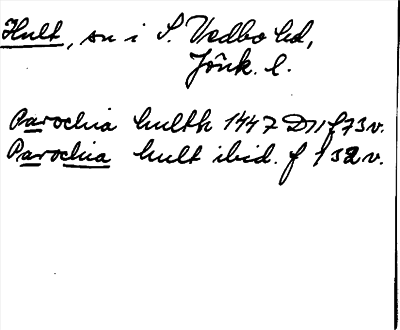 Hult, sn i S. Vedbo hd,
Jönk. l.
Parochia hulth 1447 D11 f 73 v.
Parochia hult ibid. f 132 v.